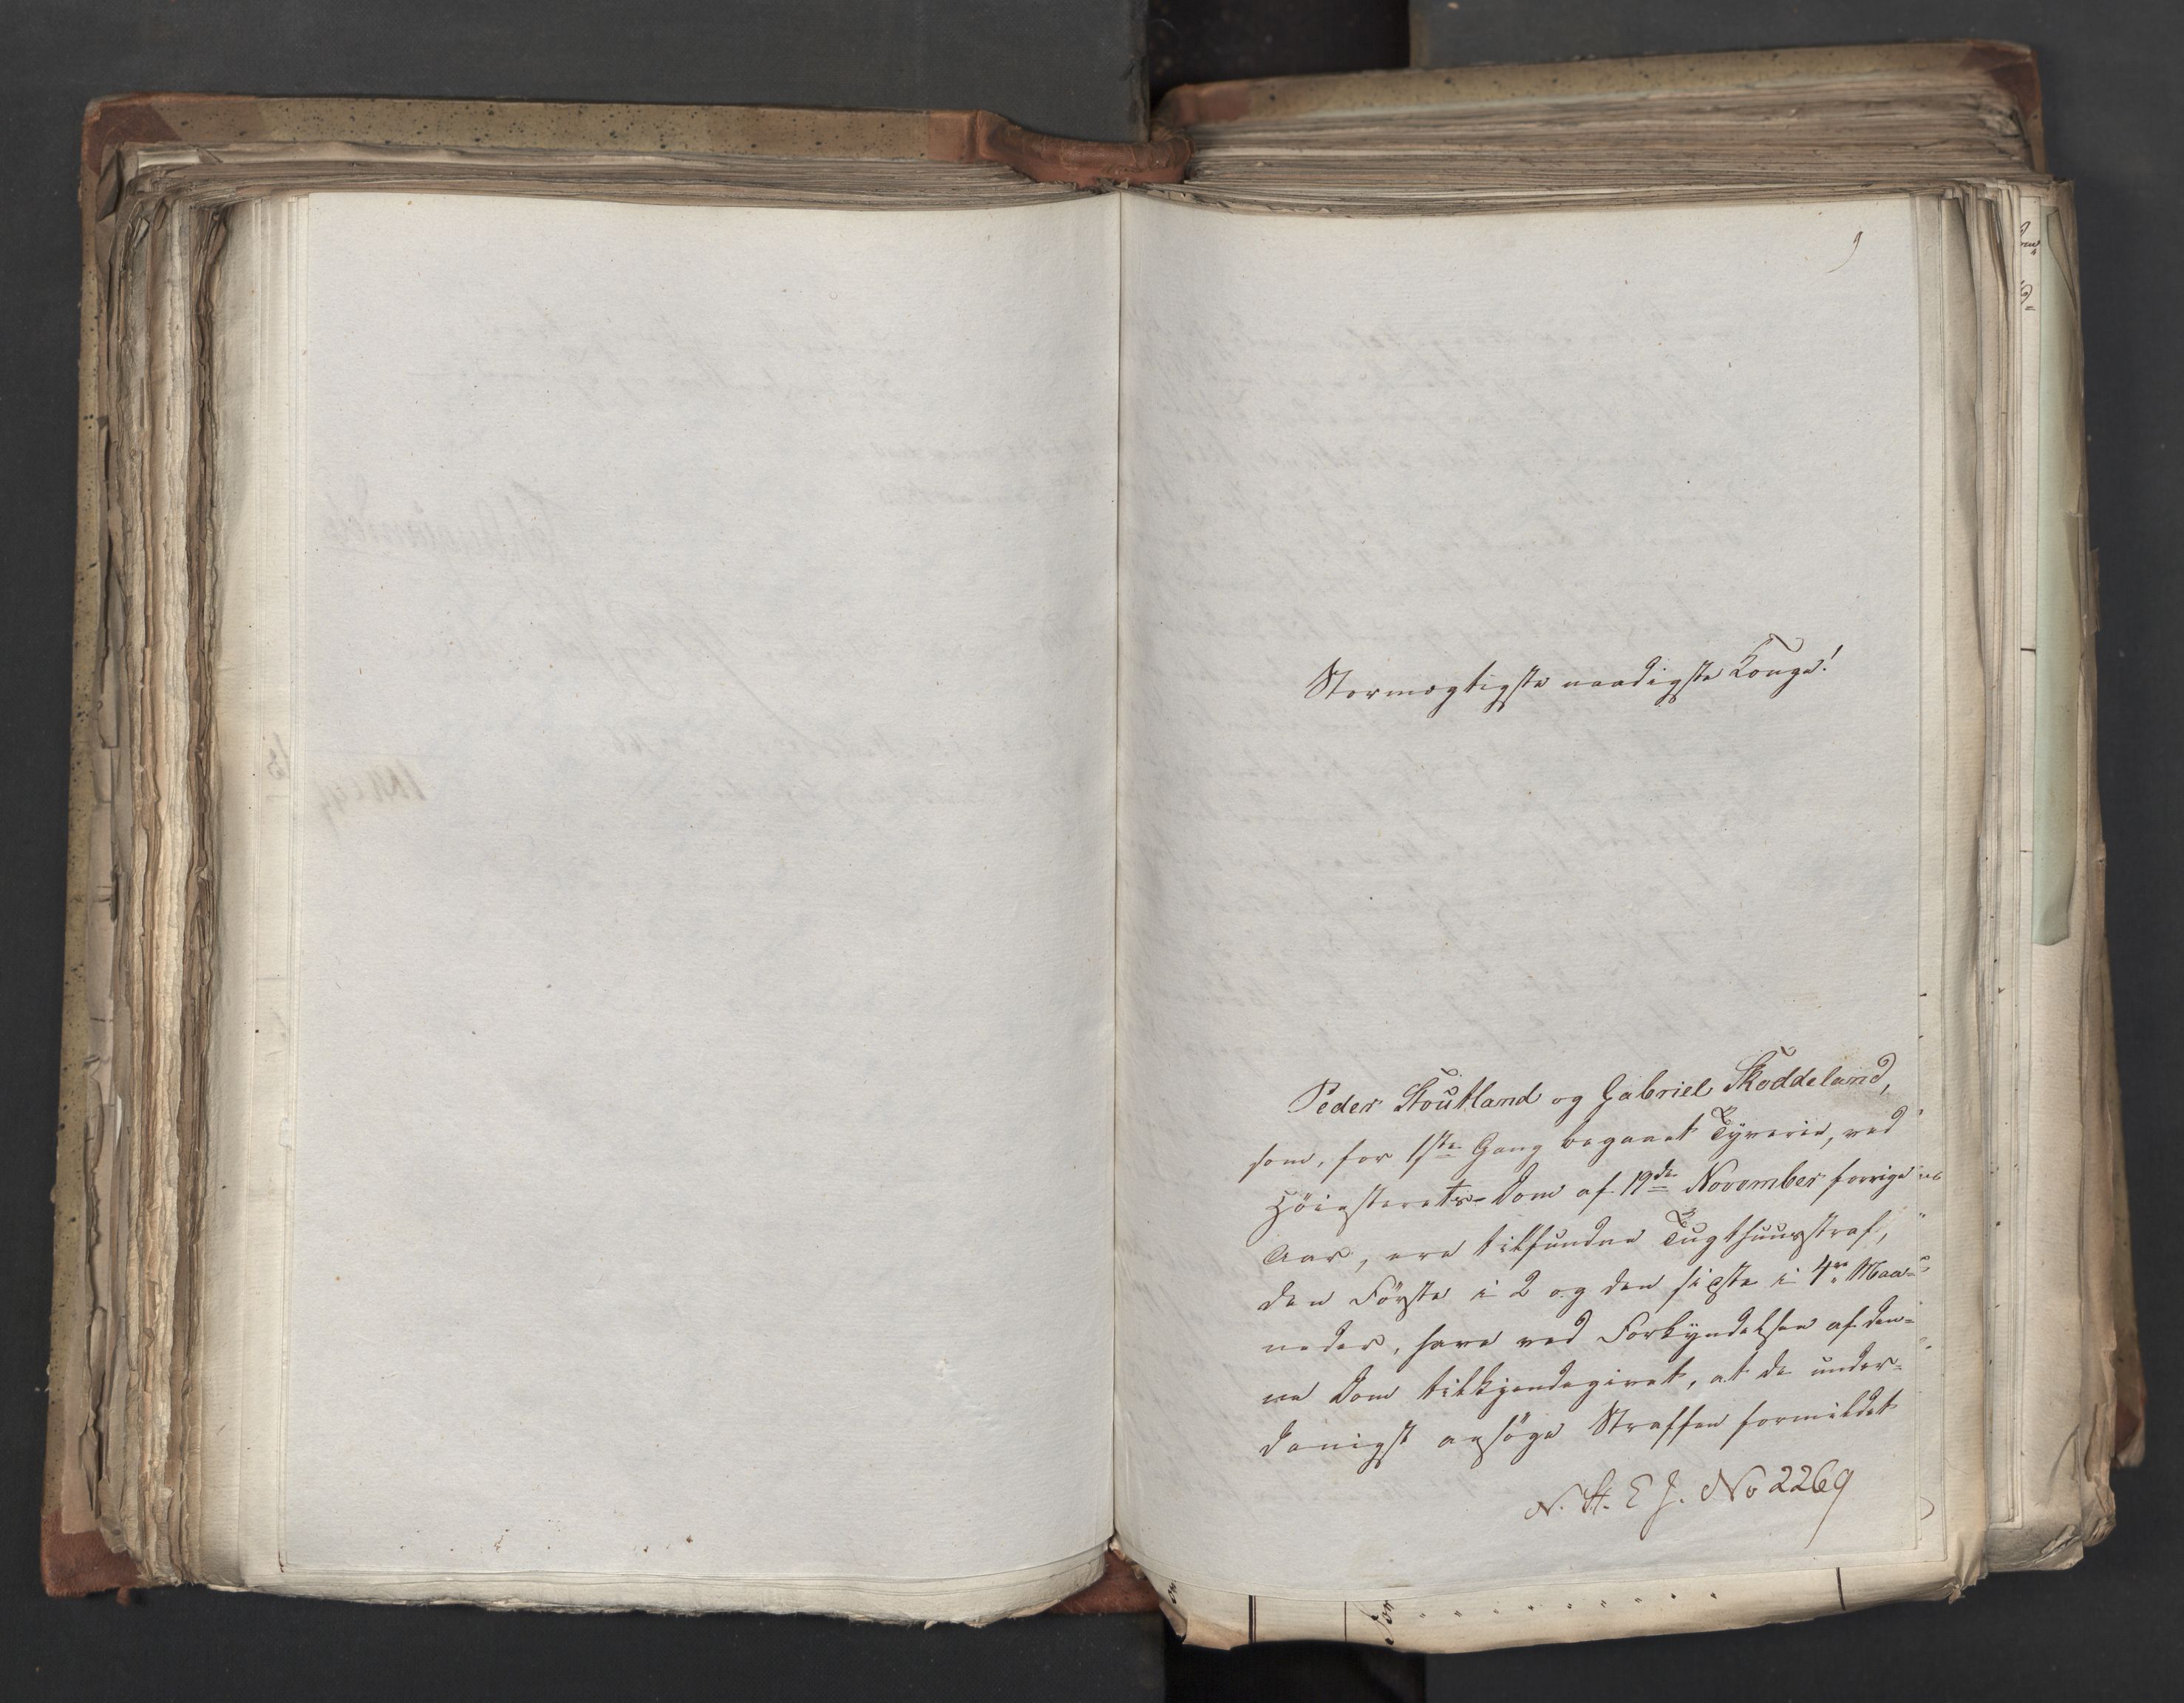 9
Stormægtigste naadigste Konge!
Peder Stoutland og Gabriel Skoddeland,
som, for 1ste Gang begaaet Tyverie, ved
Höiesterets-Dom af 19de November forrige
Aar, ere tilfundne Tugthuusstraf,
den Förste i 2 og den sidste i 4re Maa=
neder, have ved Forkyndelsen af den=
ne Dom tilkjendegivet, at de under=
danigst ansöge Straffen formildet
N. St. E J. No 2269